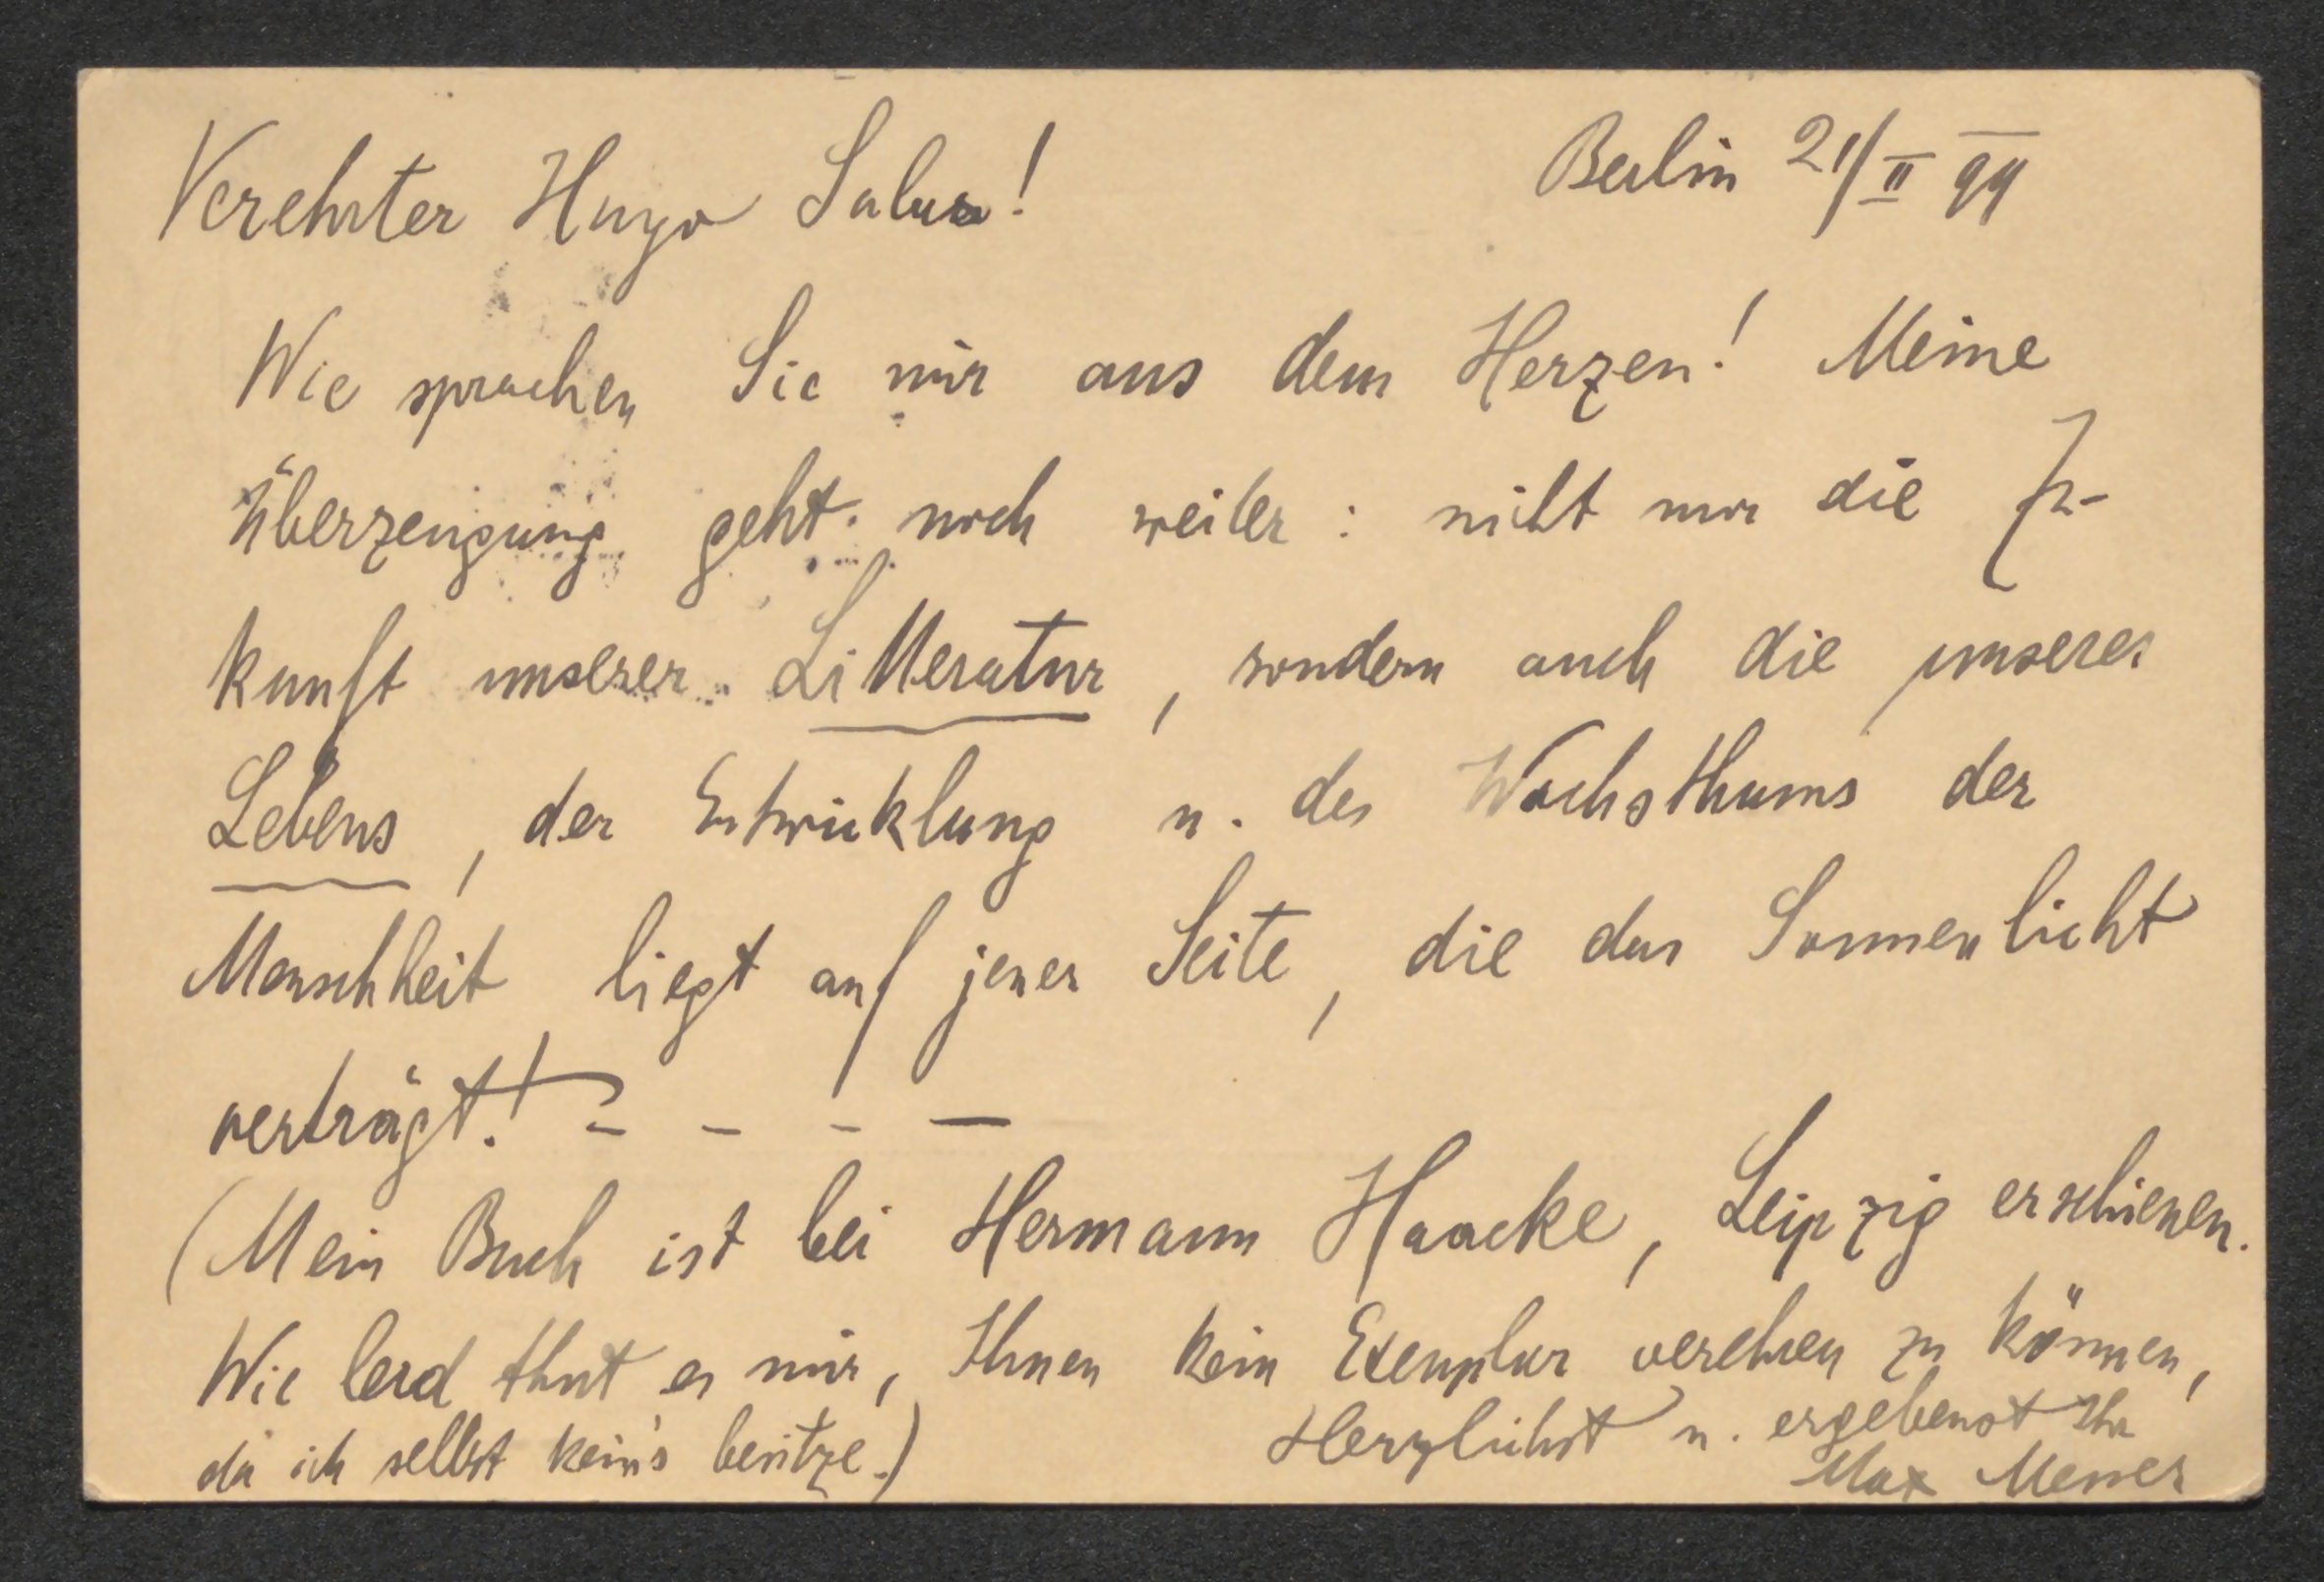 Verehrter Hugo Salus! Berlin 21/II 99
Wie sprachen Sie mir aus dem Herzen! Meine
Überzeugung geht noch weiter: nicht nur die Zu-
kunft unserer Litteratur, sondern auch die unseres
Lebens, der Entwicklung u. des Wachsthums der
Menschheit liegt auf jener Seite, die das Sonnenlicht
verträgt! – – – —
(Mein Buch ist bei Hermann Haacke, Leipzig erschienen.
Wie leid thut es mir, Ihnen kein Exemplar verehren zu können,
da ich selbst kein's besitze.) Herzlichst u. ergebenst Ihr
Max Messer